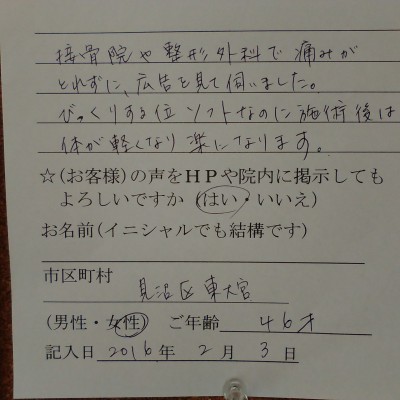 接骨院や整形外科で痛みが
とれずに、広告を見て伺いました。
びっくりする位ソフトなのに施術後は
体が軽くなり楽になります。
☆(お客様)の声をHPや院内に掲示しても
よろしいですか(はい・いいえ)
お名前(イニシャルでも結構です)
市区町村 見沼区東大宮
(男性・女性) ご年齢 46才
記入日 2016年 2月 3日